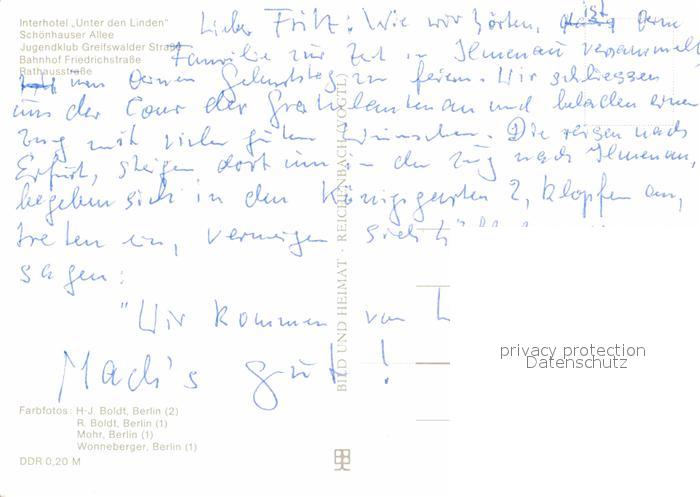 Interhotel „Unter den Linden"
Schönhauser Allee
Jugendklub Greifswalder Straße
Bahnhof Friedrichstraße
Rathausstraße
Lieber Fritz! Wie wir hörten, ist Deine
Familie zur Zeit in Ilmenau versammelt,
um Deinen Geburtstag zu feiern. Wir schliessen
uns der Cour der Gratulanten an und beladen einen
Zug mit vielen guten Wünschen. Die reisen nach
Erfurt, steigen dort um in den Zug nach Ilmenau,
begeben sich in den Königsgarten 2, klopfen an,
treten ein, verneigen sich
sagen:
"Wir kommen von
Mach's gut!
BILD UND HEIMAT · REICHENBACH (VOGTL)
privacy protection
Datenschutz
Farbfotos: H-J. Boldt, Berlin (2)
R. Boldt, Berlin (1)
Mohr, Berlin (1)
Wonneberger, Berlin (1)
DDR 0,20 M